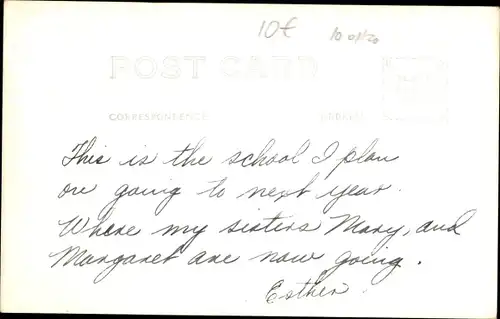 10€
POST CARD
CORRESPONDENCE
This is the school I plan
on going to next year.
Where my sisters Mary, and
Margaret are now going.
Esther.